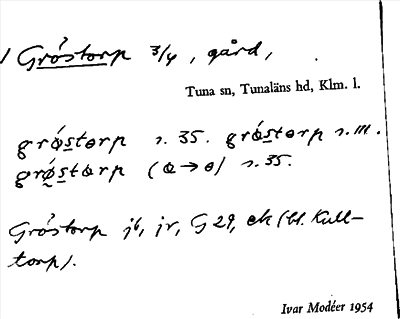 Gróstorp 3/4, gård,
Tuna sn, Tunaläns hd, Klm. l.
grǿstorp r. 35. grǿstorp r. III.
grǿstɑrp (ɑ→ө) r. 35.
Gróstorp j6, jr, G 29, ek (bl. Kull-
torp).
Ivar Modéer 1954